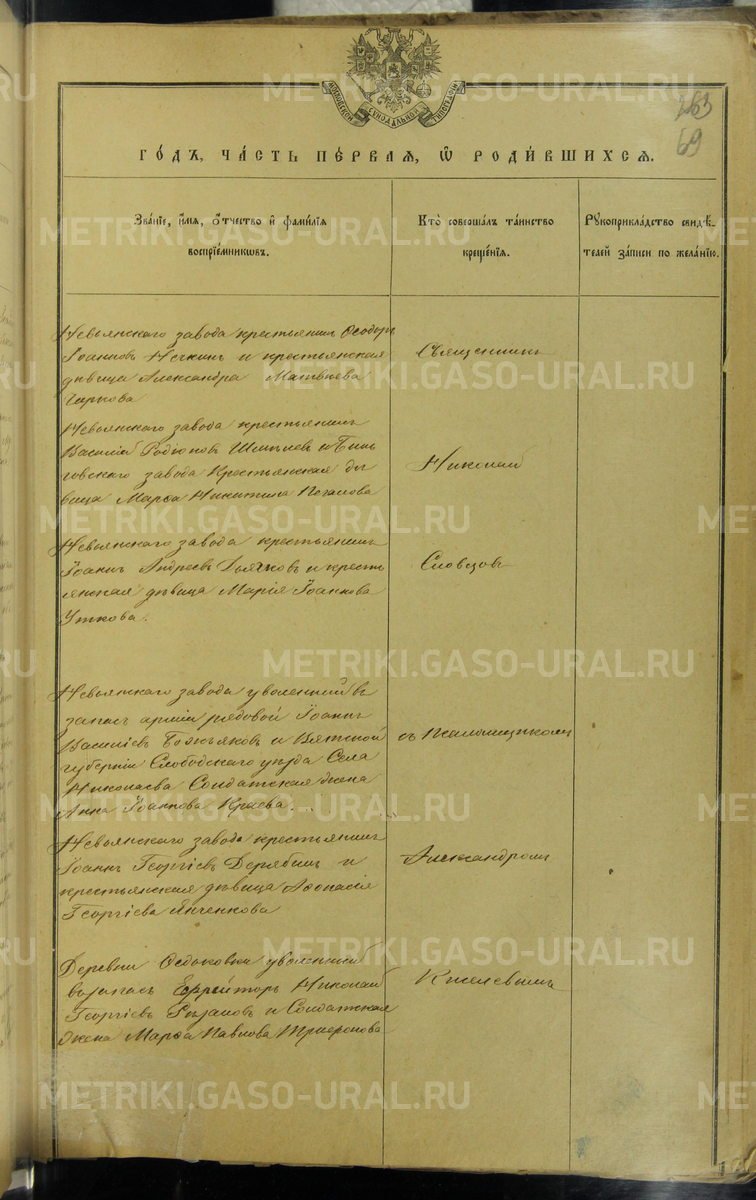 МОСКОВСКОЙ СѴНОДАЛЬНОЙ ТИПОГРАФІИ
263
69
ГО́ДЪ, ЧА́СТЬ ПЕ́РВАЯ, Ѡ҆ РОДИ́ВШИХСЯ.
Зва́нїе, и҆́мѧ, ѻ҆́тчество и҆ фами́лїѧ
воспрїе́мникѡвъ.
Кто̀ соверша́лъ та́инство
креще́нїѧ.
Рꙋкоприкла́дство свидѣ́-
телей за́писи по жела́нїю.
Невьянскаго завода крестьянинъ Ѳеодоръ
Іоанновъ и крестьянская
дѣвица Александра Матвѣева
Чиркова
Священникъ
Невьянскаго завода крестьянинъ
Василій Родіоновъ Шмелевъ и
завода Крестьянская дѣ
вица Марѳа Никитина
Николай
Невьянскаго завода крестьянинъ
Іоаннъ Андреевъ и кресть
янская дѣвица Марія Іоаннова
Уткова.
Словцовъ
Невьянскаго завода уволенный въ
запасъ арміи рядовой Іоаннъ
Василіевъ и Вятской
губерніи Слободскаго уѣзда Села
Николаева Солдатская жена
Анна Іоаннова Краева.
съ Псаломщикомъ
Невьянскаго завода крестьянинъ
Іоаннъ Георгіевъ Дерябинъ и
крестьянская дѣвица Аѳанасія
Георгіева Янченкова
Александромъ
Деревни Ѳедьковки уволенный
въ запасъ Ефрейторъ Николай
Георгіевъ Рязановъ и Солдатская
жена Марѳа Павлова Трифонова
Киселевымъ
METRIKI.GASO-URAL.RU